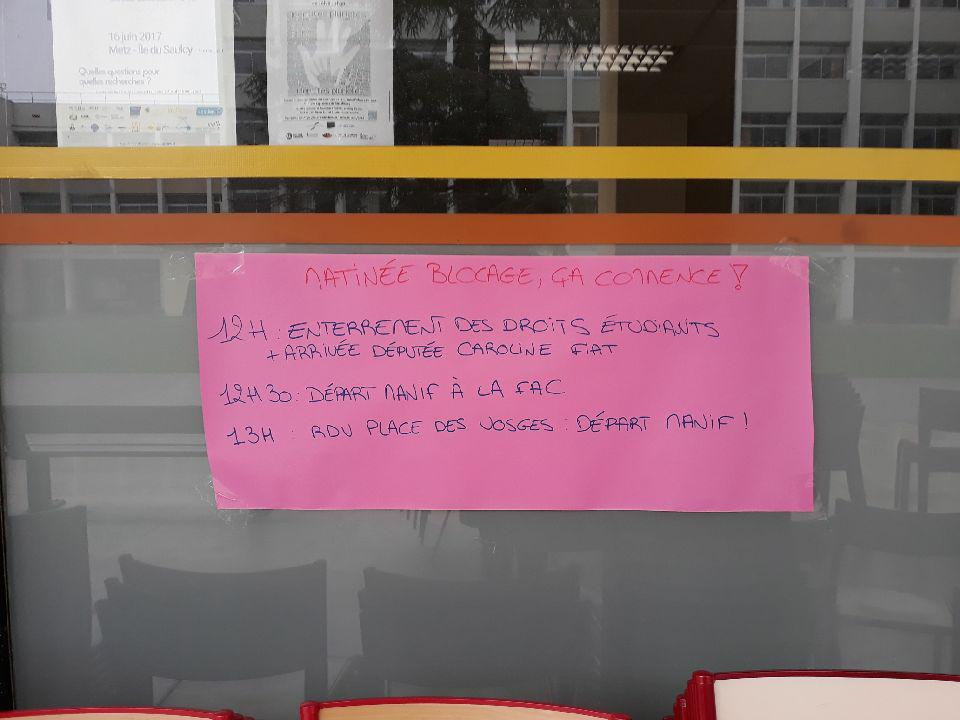 16 juin 2017
Metz - Île du Saulcy
Quelles questions pour
quelles recherches ?
MATINÉE BLOCAGE, ÇA COMENCE !
12H : ENTERREMENT DES DROITS ÉTUDIANTS
+ ARRIVÉE DÉPUTÉE CAROLINE FIAT
12H30 : DÉPART MANIF À LA FAC
13H : RDV PLACE DES VOSGES : DÉPART MANIF !